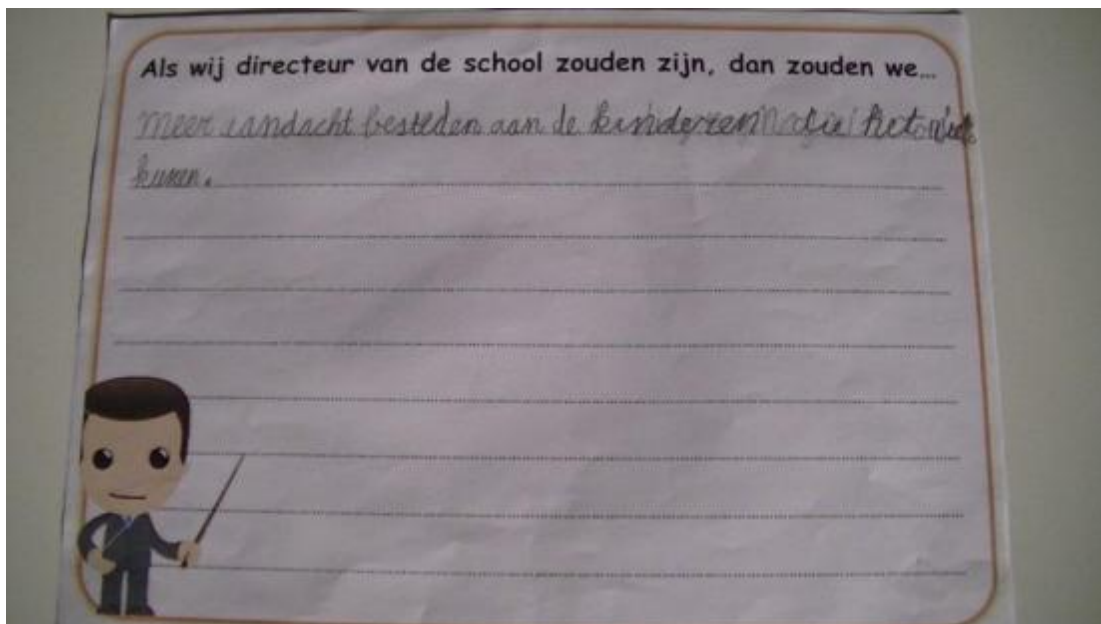 Als wij directeur van de school zouden zijn, dan zouden we...
meer aandacht besteden aan de kinderen die het niet
kunen.